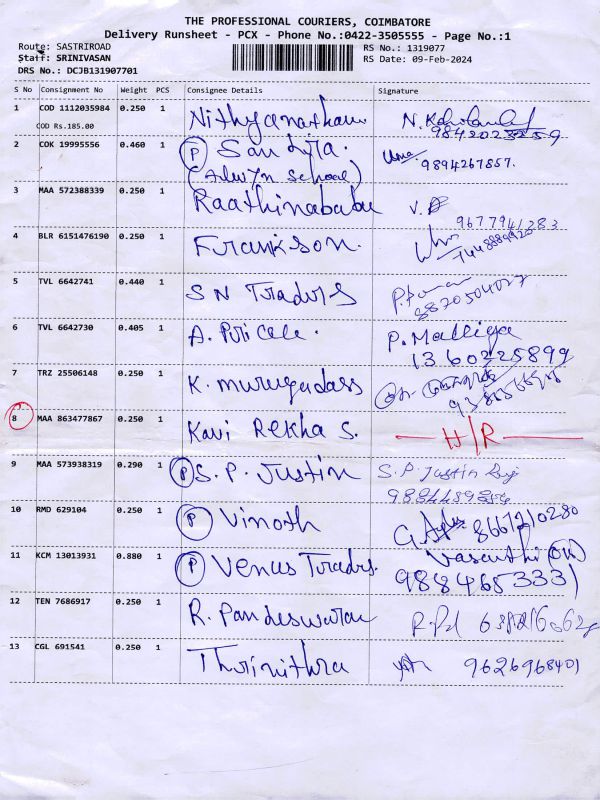 THE PROFESSIONAL COURIERS, COIMBATORE
Delivery Runsheet - PCX - Phone No.:0422-3505555 - Page No.:1
Route: SASTRIROAD
RS No.: 1319077
Staff: SRINIVASAN
RS Date: 09-Feb-2024
DRS No.: DCJB131907701
S No Consignment No Weight PCS Consignee Details Signature
1 COD 1112035984 0.250 1 Nithyanathan N.
COD Rs.185.00
2 COK 19995556 0.460 1 P Sandira. Uma 9894267857.
School)
3 MAA 572388339 0.250 1 Raathinababu V.
9677941283
4 BLR 6151476190 0.250 1 Frankson.
5 TVL 6642741 0.440 1 S N Traders
8870504027
6 TVL 6642730 0.405 1 A. P. Malliga
1360225899
7 TRZ 25506148 0.250 1 K. murugadass
8 MAA 863477867 0.250 1 Kavi Rekha S. H/R
9 MAA 573938319 0.290 1 P S. P. Justin S.P. Justin
10 RMD 629104 0.250 1 P Vinoth
11 KCM 13013931 0.880 1 P Venus Traders. Vasanthi
9884653331
12 TEN 7686917 0.250 1 R. Pandeswaran
13 CGL 691541 0.250 1 Thrinithra 9626968401